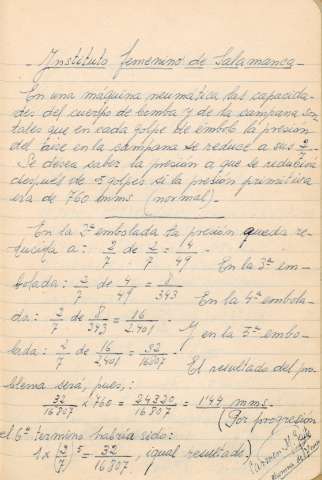 - Instituto femenino de Salamanca -
En una máquina neumática las capacida-
des del cuerpo de bomba y de la campana son
tales que en cada golpe de émbolo la presión
del aire en la campana se reduce a sus 2/7.
Se desea saber la presión a que se reducirá
después de 5 golpes si la presión primitiva
era de 760 mms (normal).-
En la 2ª embolada la presión queda re-
ducida a: 2/7 de 2/7 = 4/49.
En la 3ª em-
bolada: 2/7 de 4/49 = 8/343
En la 4ª embola-
da: 2/7 de 8/343 = 16/2.401
Y en la 5ª embo-
lada: 2/7 de 16/2.401 = 32/16807.
El resultado del pro-
blema será, pues,:
32/16807 x 760 = 24320/16807 = 1'44 mms.
(Por progresión
el 6º término habría sido:
1 x (2/7)^5 = 32/16807, igual resultado.)
Carmen M.